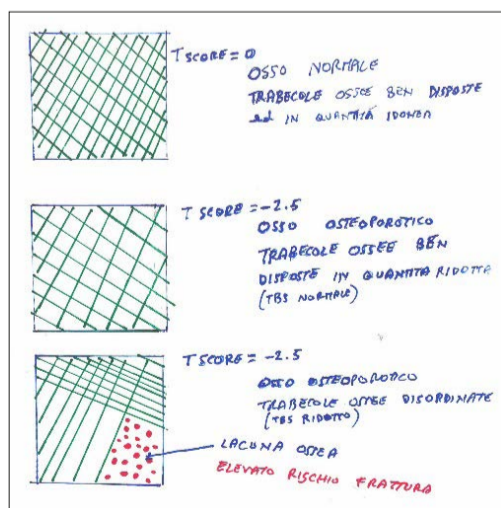 T SCORE = 0
OSSO NORMALE
TRABECOLE OSSEE BEN DISPOSTE
ed IN QUANTITÀ IDONEA
T SCORE = -2.5
OSSO OSTEOPOROTICO
TRABECOLE OSSEE BEN
DISPOSTE IN QUANTITA RIDOTTA
(TBS NORMALE)
T SCORE = -2.5
OSSO OSTEOPOROTICO
TRABECOLE OSSEE DISORDINATE
(TBS RIDOTTO)
LACUNA OSSEA
ELEVATO RISCHIO FRATTURA